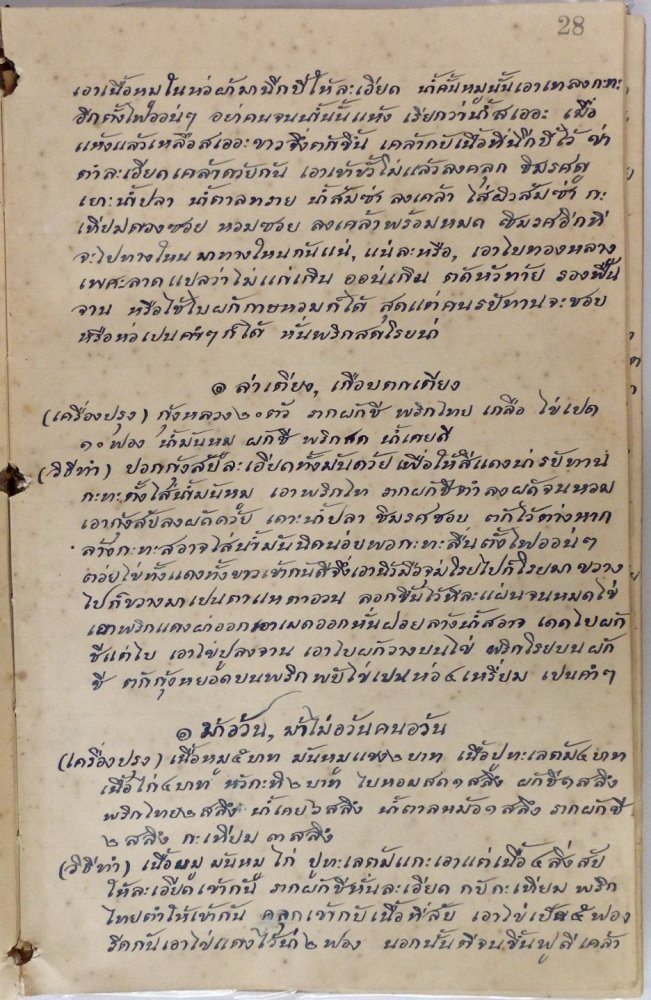 28
เอาเนื้อหมูในห่อผ้ามาฉีกปีให้ละเอียด น้ำคั้นหมูนั้นเอาเทลงกะทะ
อีกตั้งไฟอ่อนๆ อย่าคนจนน้ำนั้นแห้ง เรียกว่าน้ำสเออะ เมื่อ
แห้งแล้วเหลือสเออะขาวจึ่งตักขึ้น เคล้ากับเนื้อที่ฉีกปีไว้ ข่า
ตำละเอียดเคล้าด้วยกัน เอาเข้าขั้วโม่แล้วลงคลุก ชิมรศดู
เยาะน้ำปลา น้ำตาลทราย น้ำส้มซ่า ลงเคล้า ใส่ผิวส้มซ่า กะ
เทียมดองซอย หอมซอย ลงเคล้าพร้อมหมด ชิมรศอีกที
จะไปทางไหน มาทางไหนกันแน่, แน่ละหรือ, เอาใบทองหลาง
เพศะลาดแปลว่าไม่แก่เกิน อ่อนเกิน ตัดหัวท้าย รองพื้น
จาน หรือใช้ใบผักกาดหอมก็ได้ สุดแต่คนรับทานจะชอบ
หรือห่อเปนคำๆ ก็ได้ หั่นพริกสดโรยน่า
๑ ล่าเตียง, เกือบตกเตียง
(เครื่องปรุง) กุ้งหลวง ๒๐ ตัว รากผักชี พริกไทย เกลือ ไข่เปด
๑๐ ฟอง น้ำมันหมู ผักชี พริกสด น้ำเคยดี
(วิธีทำ) ปอกกุ้งสับละเอียดทั้งมันด้วย เพื่อให้สีแดงน่ารับทาน
กะทะตั้งใส่น้ำมันหมู เอาพริกไท รากผักชีตำลงผัดจนหอม
เอากุ้งสับลงผัดด้วย เดาะน้ำปลา ชิมรศชอบ ตักไว้ต่างหาก
ล้างกะทะสอาจใส่น้ำมันนิดน่อยพอกะทะลื่นตั้งไฟอ่อนๆ
ต่อยไข่ทั้งแดงทั้งขาวเข้ากันดีจึ่งเอานิ้วมือจุ่มโรยไปก็โรยมา ขวาง
ไปก็ขวางมาเปนตาแหตาอวน ลอกขึ้นไว้ทีละแผ่นจนหมดไข่
เอาพริกแดงผ่าออกเอาเมดออกหั่นฝอยล้างน้ำสอาจ เดดใบผัก
ชีแต่ใบ เอาไข่ปูลงจาน เอาใบผักวางบนไข่ พริกโรยบนผัก
ชี ตักกุ้งหยอดบนพริก พับไข่เปนห่อ ๔ เหรี่ยม เปนคำๆ
๑ ม้าอ้วน, ม้าไม่อ้วนคนอ้วน
(เครื่องปรุง) เนื้อหมู ๕ บาท มันหมูแขง ๒ บาท เนื้อปูทะเลต้ม ๔ บาท
เนื้อไก่ ๔ บาท หัวกะทิ ๒ บาท ใบหอมสด ๑ สลึง ผักชี ๑ สลึง
พริกไทย ๒ สลึง น้ำเคย ๖ สลึง น้ำตาลหม้อ ๑ สลึง รากผักชี
๒ สลึง กะเทียม ๓ สลึง
(วิธีทำ) เนื้อหมู มันหมู ไก่ ปูทะเลต้มแกะเอาแต่เนื้อ ๔ สิ่งสับ
ให้ละเอียดเข้ากัน รากผักชีหั่นละเอียด กับกะเทียม พริก
ไทยตำให้เข้ากัน คลุกเข้ากับเนื้อที่สับ เอาไข่เป็ด ๕ ฟอง
รีดกันเอาไข่แดงไว้น่า ๒ ฟอง นอกนั้นตีจนขึ้นฟูดีเคล้า